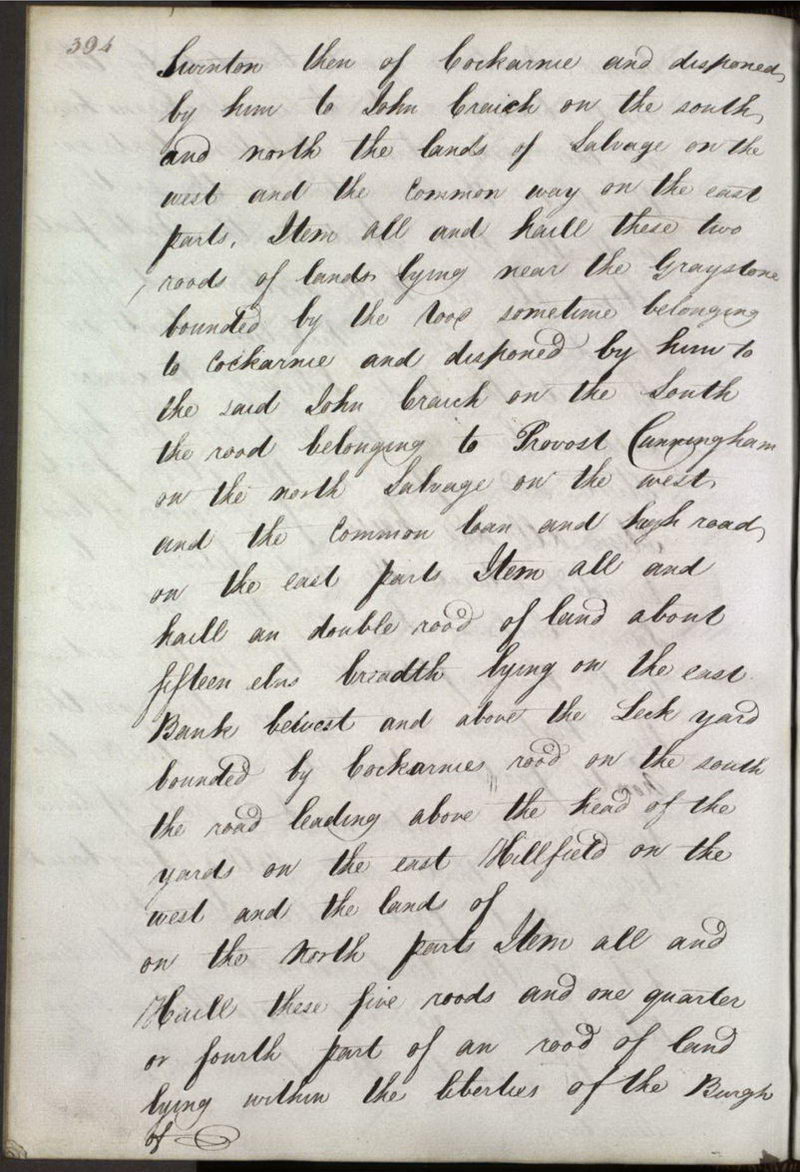 394
Swinton then of Cockarnie and disponed
by him to John Craich on the south
and north the lands of Salvage on the
west and the Common way on the east
parts. Item all and haill these two
roods of lands lying near the Graystone
bounded by the rood sometime belonging
to Cockarnie and disponed by him to
the said John Craich on the South
the rood belonging to Provost Cunningham
on the north Salvage on the west
and the Common loan and high road
on the east parts Item all and
haill an double rood of land about
fifteen elns breadth lying on the east
Bank bewest and above the Leck yard
bounded by Cockarnies rood on the south
the road leading above the head of the
yards on the east Hillfield on the
west and the lands of
on the North parts Item all and
Haill these five roods and one quarter
or fourth part of an rood of land
lying within the liberties of the Burgh
of